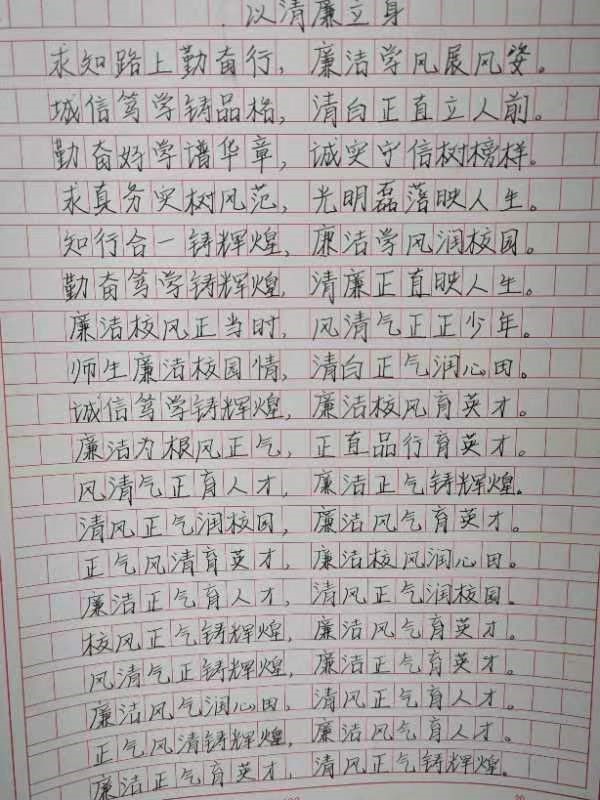 以清廉立身
求知路上勤奋行，廉洁学风展风姿。
城信笃学铸品格，清白正直立人前。
勤奋好学谱华章，诚实守信树榜样。
求真务实树风范，光明磊落映人生。
知行合一铸辉煌，廉洁学风润校园。
勤奋笃学铸辉煌，清廉正直映人生。
廉洁校风正当时，风清气正正少年。
师生廉洁校园情，清白正气润心田。
诚信笃学铸辉煌，廉洁校风育英才。
廉洁为根风正气，正直品行育英才。
风清气正育人才，廉洁正气铸辉煌。
清风正气润校园，廉洁风气育英才。
正气风清育英才，廉洁校风润心田。
廉洁正气育人才，清风正气润校园。
校风正气铸辉煌，廉洁风气育英才。
风清气正铸辉煌，廉洁正气育英才。
廉洁风气润心田，清风正气育人才。
正气风清铸辉煌，廉洁风气育人才。
廉洁正气育英才，清风正气铸辉煌。